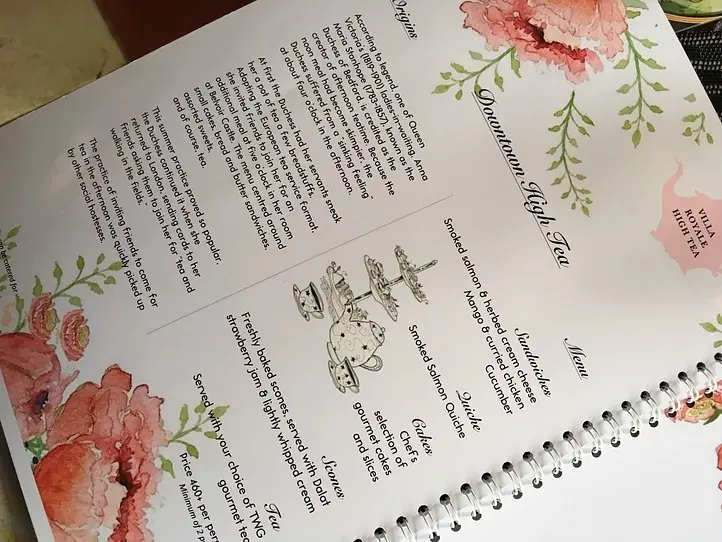 VILLA
ROYALE
HIGH TEA
Downtown High Tea
Origins
According to legend, one of Queen
Victoria's (1819-1901) ladies-in-waiting, Anna
Maria Stanhope (1783-1857), known as the
Duchess of Bedford, is credited as the
creator of afternoon teatime. Because the
noon meal had become skimpier, the
Duchess suffered from a "sinking feeling"
at about four o'clock in the afternoon.
At first the Duchess had her servants sneak
her a pot of tea and a few breadstuffs.
Adopting the European tea service format,
she invited friends to join her for an
additional meal at five o'clock in her room
at Belvoir Castle. The menu centred around
small cakes, bread and butter sandwiches,
assorted sweets,
and of course, tea.
This summer practice proved so popular,
the Duchess continued it when she
returned to London, sending cards to her
friends asking them to join her for "tea and
walking in the fields."
The practice of inviting friends to come for
tea in the afternoon was quickly picked up
by other social hostesses.
Menu
Sandwiches
Smoked salmon & herbed cream cheese
Mango & curried chicken
Cucumber
Quiche
Smoked Salmon Quiche
Cakes
Chef's
selection of
gourmet cakes
and slices
Scones
Freshly baked scones, served with Dalat
strawberry jam & lightly whipped cream
Tea
Served with your choice of TWG
gourmet tea
Price 460+ per per
Minimum of 2 p
be catered for